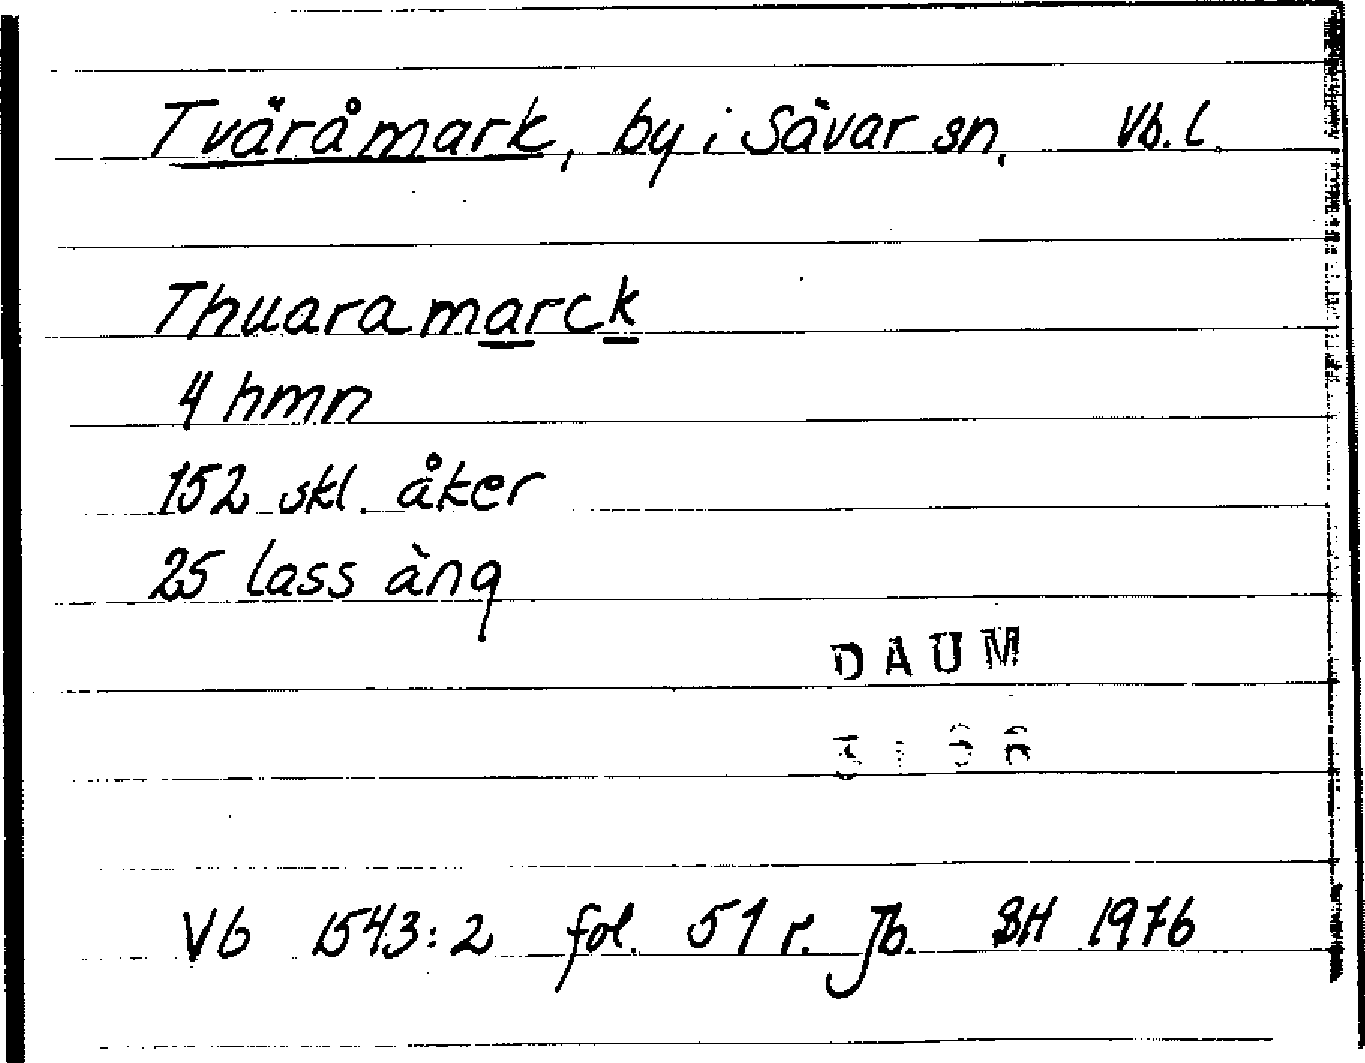 Tväråmark, by i Sävar sn. Vb. l.
Thuaramarck
4 hmn
152 skl. åker
25 lass äng
DAUM
Vb 1543:2 fol. 51 r. Jb. SH 1976